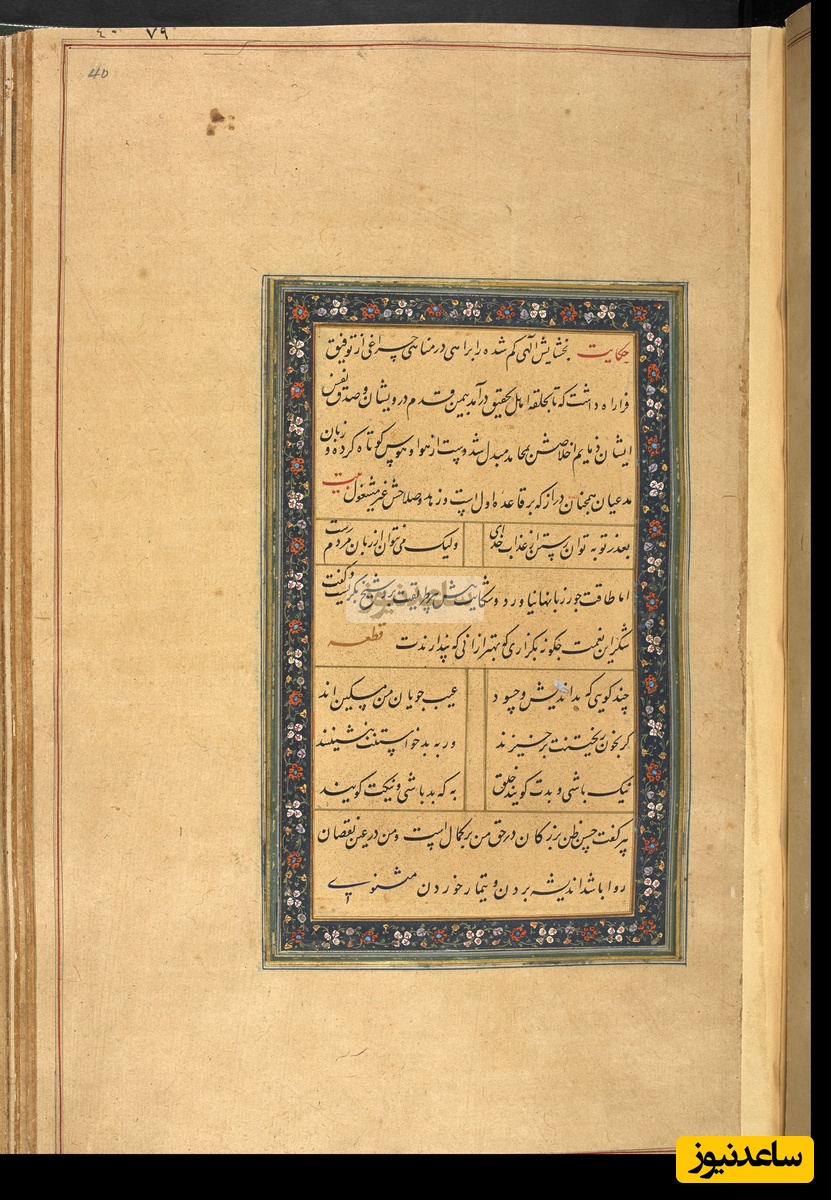 ٤٠ ٧٩
40
حکایت بخشایش الهی کم شده را براهی در مناهی چراغی از توفیق
فراراه داشت که تا بحلقه اهل تحقیق درآمد بیمن قدم درویشان و صدق نفس
ایشان ذمایم اخلاصش بمحامد مبدل شد و دست از هوا و هوس کوتاه کرده و زبان
مدعیان همچنان دراز که بر قاعده اول است و زهد و صلاحش غیر مشغول بیت
بعذر توبه توان رستن از عذاب خدای ولیک می نتوان از زبان مردم رست
اما طاقت جور زبانها نیاورد و شکایت پیش پیر طریقت برد شیخ بگریست و گفت
شکر این نعمت چگونه بگزاری که بهتر از آنی که پندارندت قطعه
چند گویی که بداندیش و حسود عیب جویان من مسکین اند
گر بخون ریختنت برخیزند ور به بد خواستنت بنشینند
نیک باشی و بدت گویند خلق به که بد باشی و نیکت گویند
پیر گفت حسن ظن بزرگان در حق من بر کمال است و من در عین نقصان
روا باشد اندیشه بردن و تیمار خوردن مثنوی
ساعدنیوز